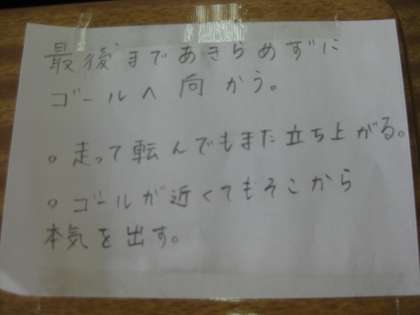 最後まであきらめずに
ゴールへ向かう。
○走って転んでもまた立ち上がる。
○ゴールが近くてもそこから
本気を出す。